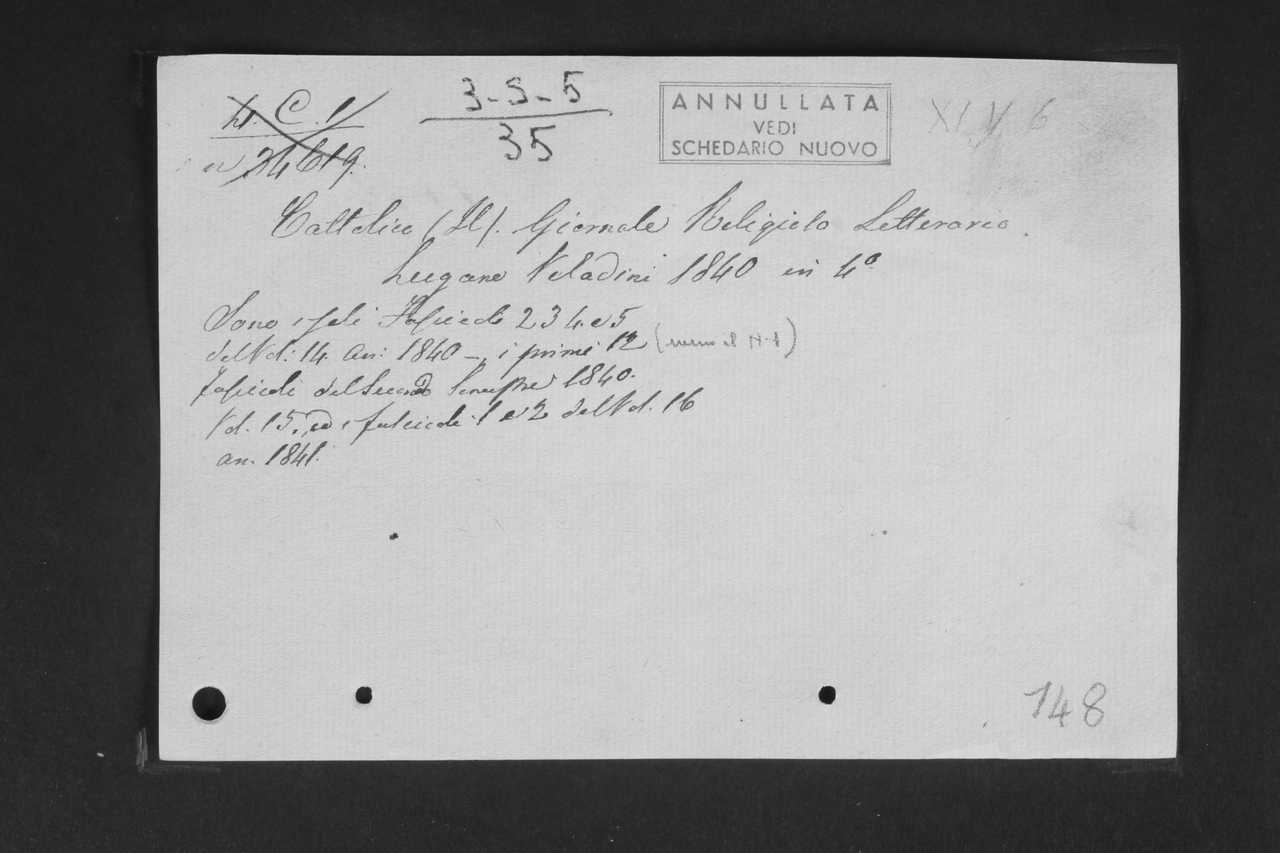 C. 1
24619.
3-S-5
35
ANNULLATA
VEDI
SCHEDARIO NUOVO
XIV 6
Cattolico (Il). Giornale Religioso Letterario.
Lugano Veladini 1840 in 4º
Sono i soli Fascicoli 2 3 4. e 5
del Vol: 14. An: 1840 – i primi 12 (meno il N. 1)
fascicoli del Secondo Semestre 1840.
Vol. 15. ed i fascicoli 1 e 2 del Vol. 16
an. 1841.
148